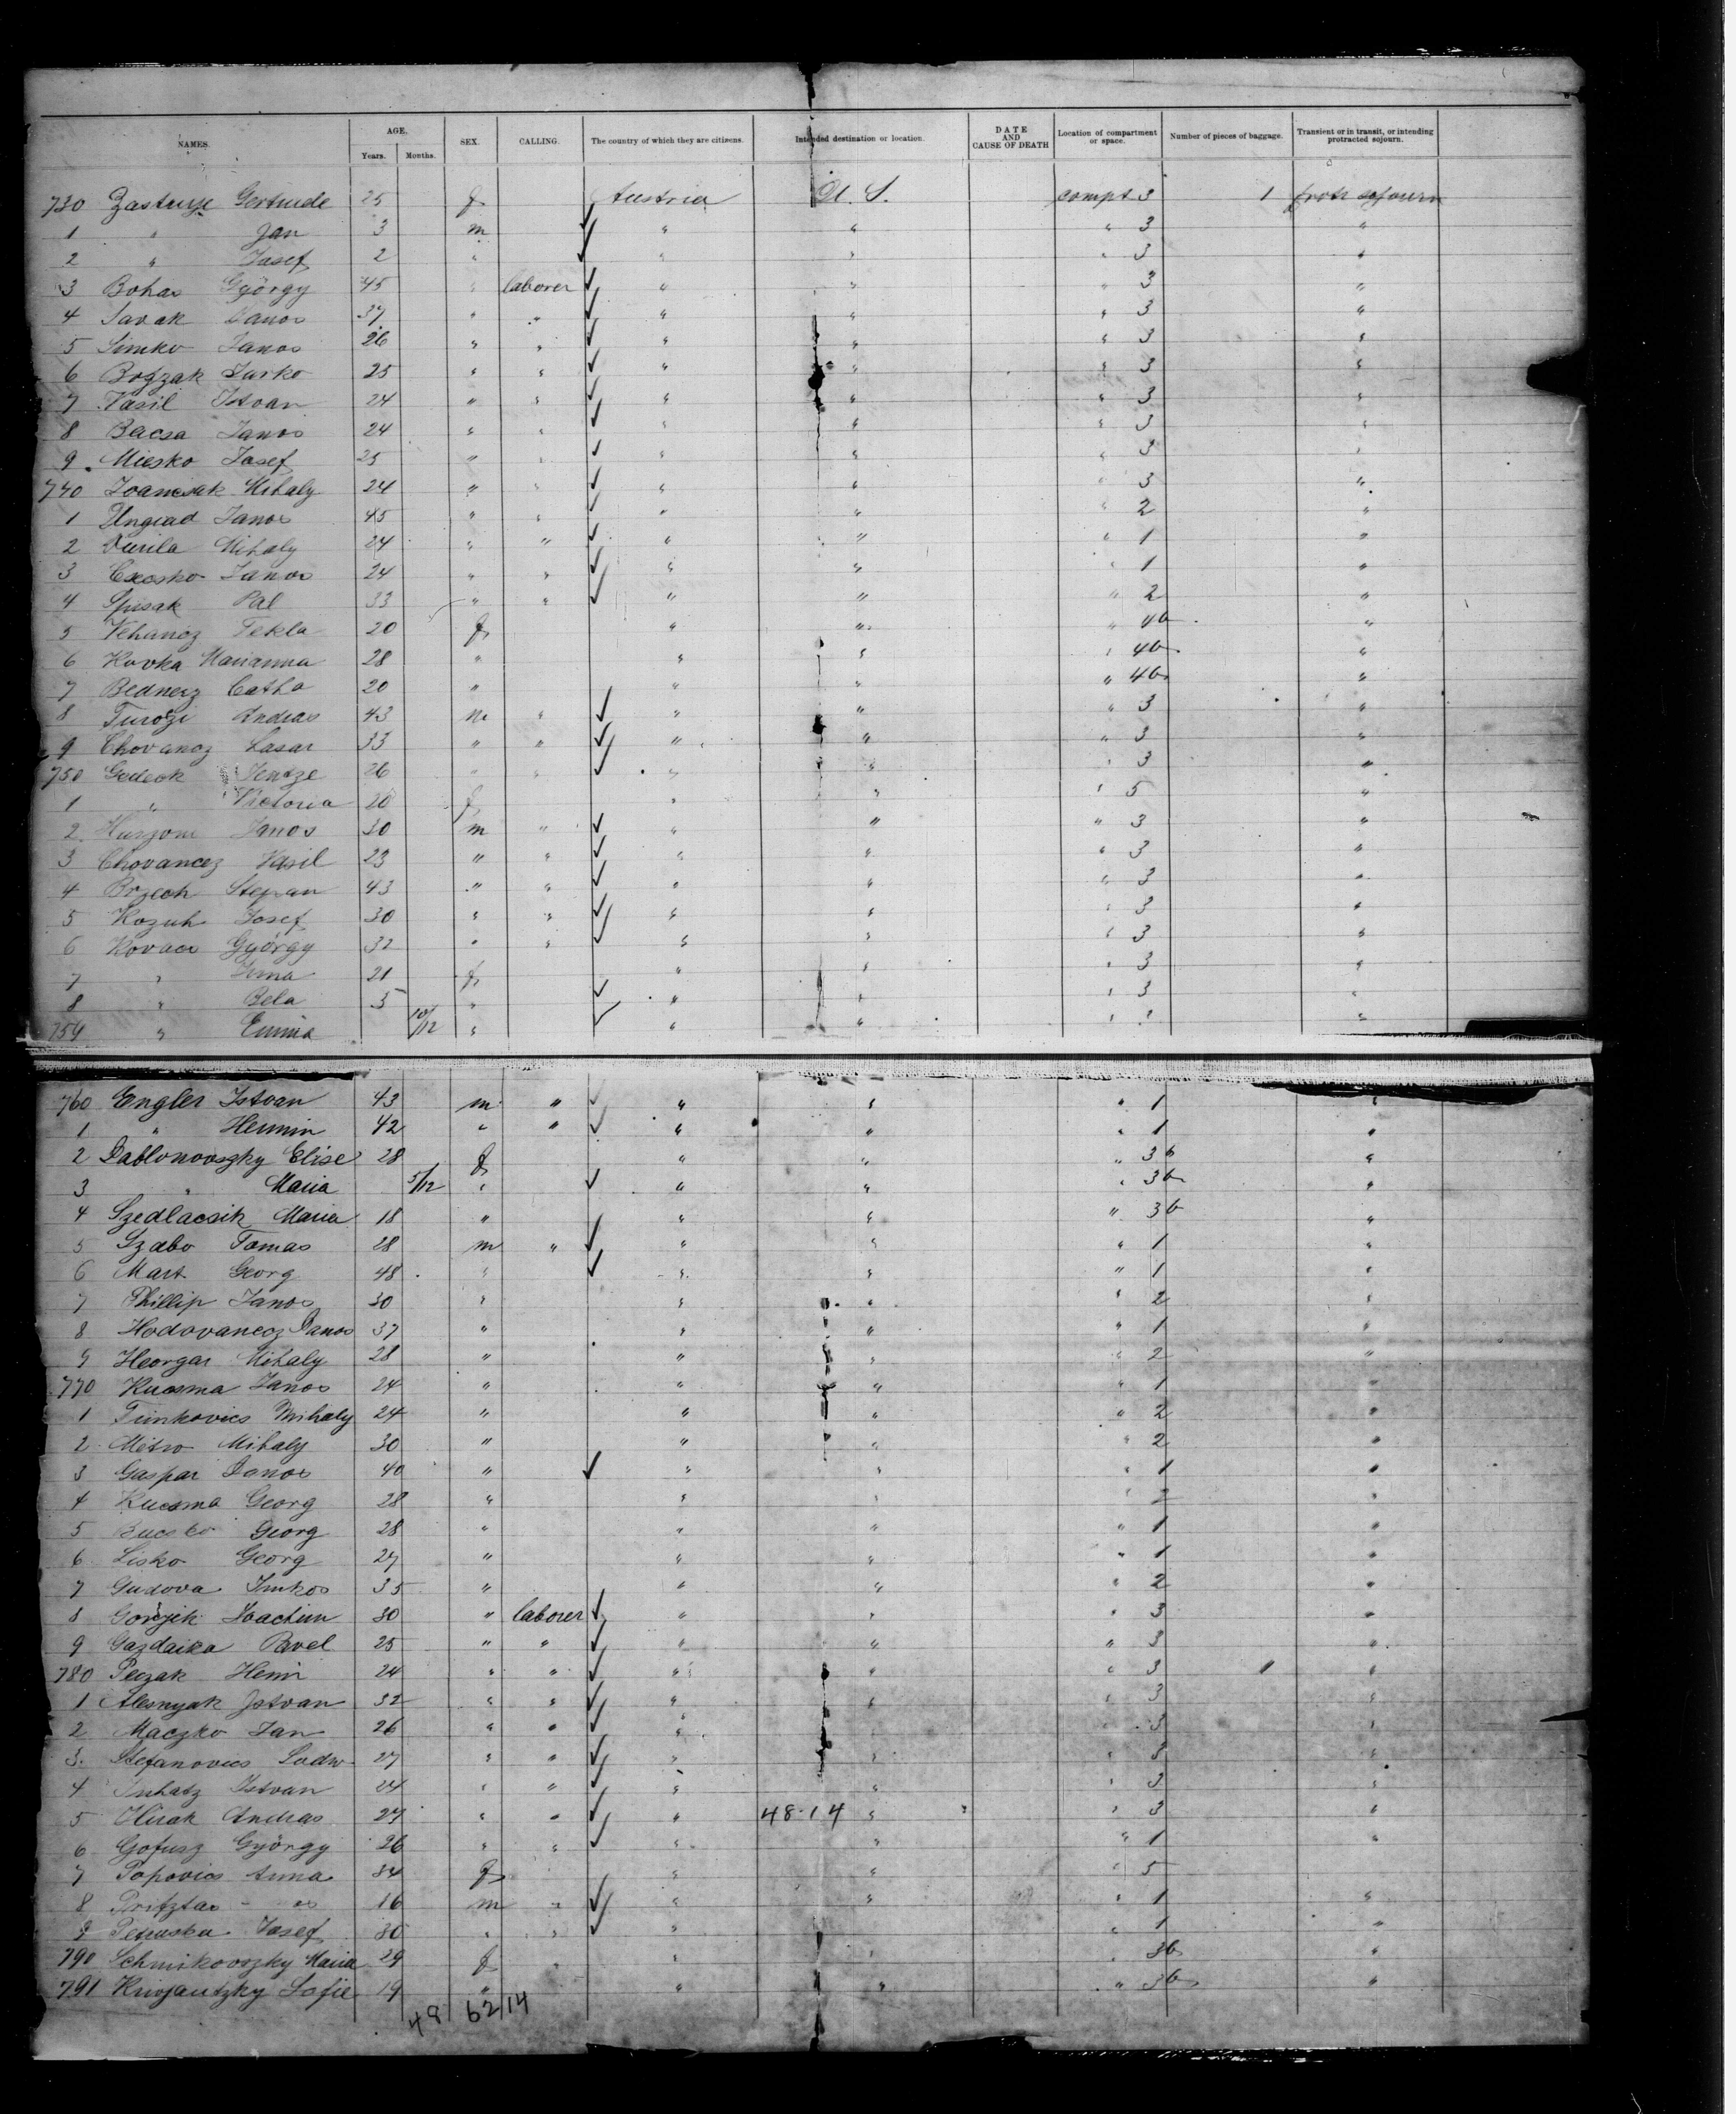 NAMES. AGE. SEX. CALLING. The country of which they are citizens. Intended destination or location. DATE AND CAUSE OF DEATH Location of compartment or space. Number of pieces of baggage. Transient or in transit, or intending protracted sojourn.
Years. Months.
730 Gertrude 25 f Austria U. S. compt 3 1 protr sojourn
1 " Jan 3 m " " " 3 "
2 " Josef 2 " " " " 3 "
3 Bohar György 45 " laborer " " " 3 "
4 Savak Janos 37 " " " " " 3 "
5 Simko Janos 26 " " " " " 3 "
6 Janko 25 " " " " " 3 "
7 Vasil Istvan 24 " " " " " 3 "
8 Bacsa Janos 24 " " " " " 3 "
9 Miesko Josef 25 " " " " " 3 "
740 Ivancsak Mihaly 24 " " " " " 3 "
1 Ungrad Janos 45 " " " " " 2 "
2 Durila Mihaly 24 " " " " " 1 "
3 Janos 24 " " " " " 1 "
4 Spisak Pal 33 " " " " " 2 "
5 Vehancz Tekla 20 f " " " 4b "
6 Kovka Marianna 28 " " " " 4b "
7 Bednerz Catha 20 " " " " 4b "
8 Turoczi Andras 43 m " " " " 3 "
9 Chovancz Lasar 33 " " " " " 3 "
750 Gedeok 26 " " " " " 3 "
1 " Victoria 20 f " " " 5 "
2 Janos 30 m " " " " 3 "
3 Chovancez Vasil 23 " " " " " 3 "
4 Brzech Stepan 43 " " " " " 3 "
5 Kozuh Josef 30 " " " " " 3 "
6 Kovacs György 32 " " " " " 3 "
7 " Irma 21 f " " " 3 "
8 " Bela 3 " " " " 3 "
759 " Emma 10/12 " " " " "
760 Engler Istvan 43 m " " " " 1 "
1 " Hermin 42 " " " " " 1 "
2 Dablonovszky Elise 28 f " " " 3b "
3 " Maria 5/12 " " " " 3b "
4 Szedlacsik Maria 18 " " " " 3b "
5 Szabo Tomas 28 m " " " " 1 "
6 Mart Georg 48 " " " " 1 "
7 Phillip Janos 30 " " " " 2 "
8 Hodovanecz Janos 37 " " " " 1 "
9 Heorgar Mihaly 28 " " " " 2 "
770 Kucsma Janos 24 " " " " 1 "
1 Timkovics Mihaly 24 " " " " 2 "
2 Mitro Mihaly 30 " " " " 2 "
3 Gaspar Janos 40 " " " " 1 "
4 Kucsma Georg 28 " " " " 2 "
5 Georg 28 " " " " 1 "
6 Lisko Georg 27 " " " " 1 "
7 Gudova 35 " " " " 2 "
8 Joachim 30 " laborer " " " 3 "
9 Gazdaika Pavel 25 " " " " " 3 "
780 Peczak 24 " " " " " 3 1 "
1 Alesnyak Istvan 32 " " " " " 3 "
2 Maczko Jan 26 " " " " 3 "
3 Stefanovics Ludw 27 " " " " " 3 "
4 Istvan 24 " " " " " 3 "
5 Hirak Andras 27 " " " 48-14 " " 3 "
6 Gofusz György 26 " " " " " 1 "
7 Popovics Anna 34 f " " " 5
8 16 m " " " " 1 "
9 Petruska Josef 30 " " " " 1 "
790 Schmikovszky Maria 29 f " " " " 3b "
791 Krivjantzky Sofie 19 " " " " 3b "
48 62 14